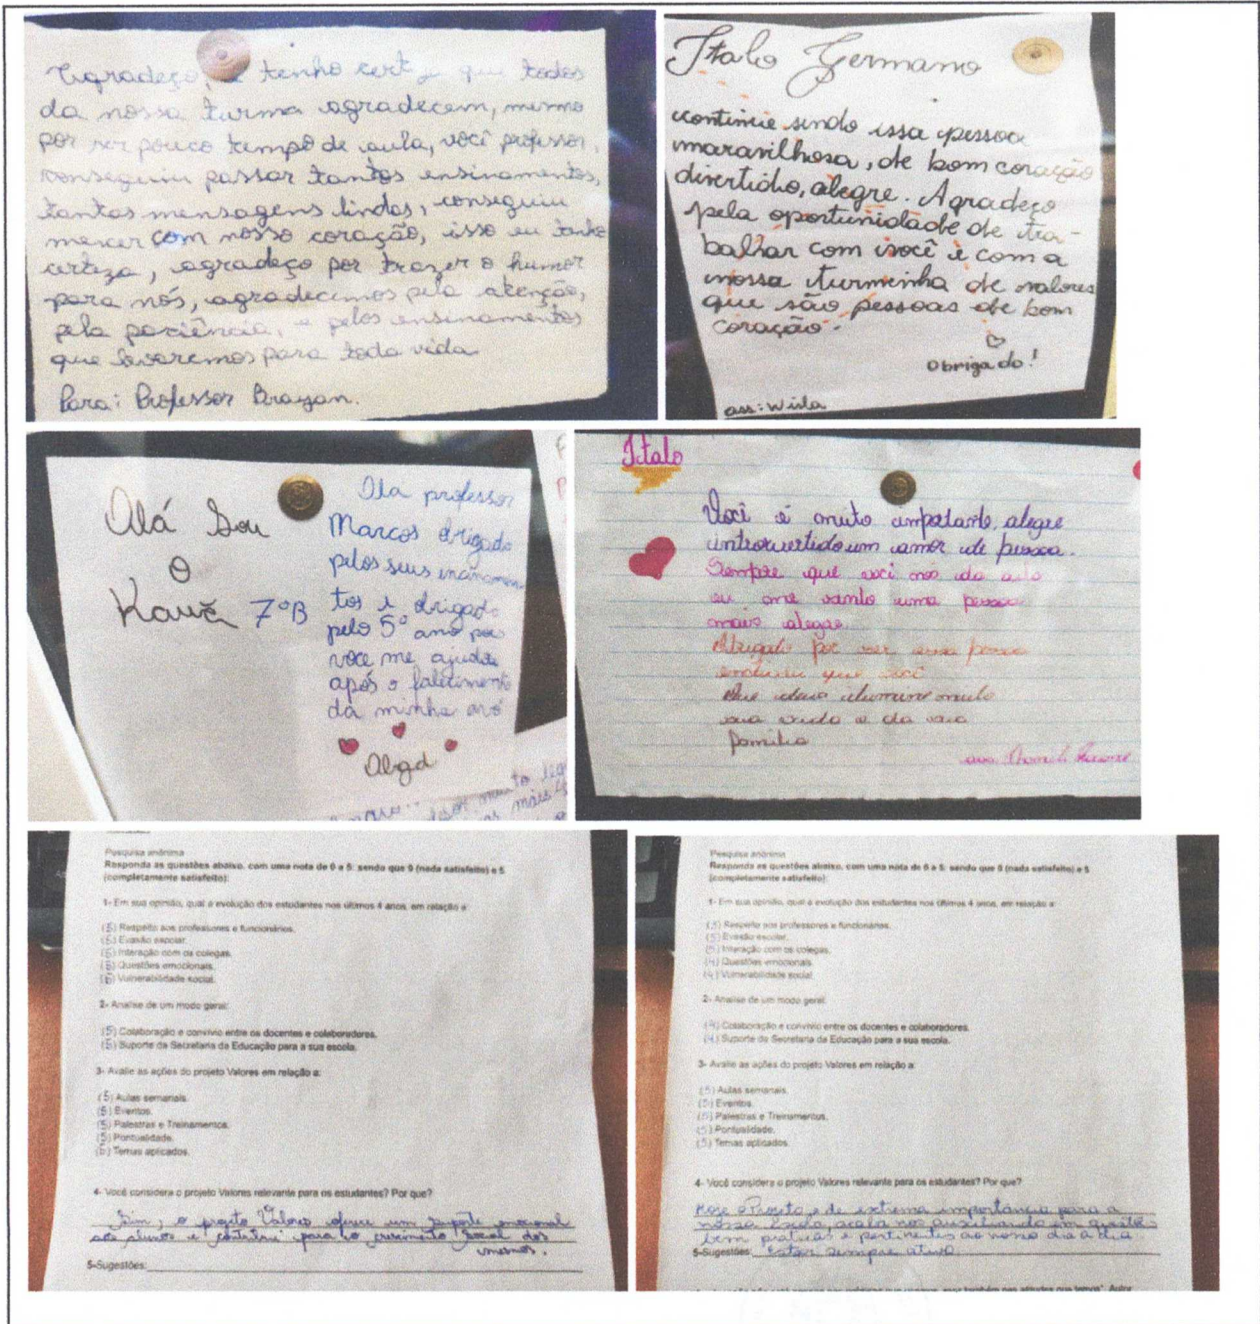 Agradeço, e tenho certeza que todos
da nossa turma agradecem, mesmo
por ser pouco tempo de aula, você professor,
conseguiu passar tantos ensinamentos,
tantas mensagens lindas, conseguiu
mexer com nosso coração, isso eu tenho
certeza, agradeço por trazer o humor
para nós, agradecemos pela atenção,
pela paciência, e pelos ensinamentos
que levaremos para toda vida
Para: Professor Brayan.
Italo Germano
continue sendo essa pessoa
maravilhosa, de bom coração
divertido, alegre. Agradeço
pela oportunidade de tra-
balhar com você e com a
nossa turminha de valores
que são pessoas de bom
coração.
Obrigado!
ass: Wisla
Olá Sou
o
Kauã 7ºB
Ola professor
Marcos obrigado
pelos seus encinamen
tos e obrigado
pelo 5º ano pois
voce me ajudou
após o falecimento
da minha avó
Obgd
Italo
Você é muito importante, alegre
introvertido um amor de pessoa.
Sempre que você nos da aula
eu me sinto uma pessoa
mais alegre.
Obrigado por ser essa pessoa
que você
Que deus ilumine muito
sua vida e da sua
família
ass:
Pesquisa anônima
Responda as questões abaixo, com uma nota de 0 a 5: sendo que 0 (nada satisfeito) e 5
(completamente satisfeito):
1- Em sua opinião, qual a evolução dos estudantes nos últimos 4 anos, em relação a:
(5) Respeito aos professores e funcionários.
(5) Evasão escolar.
(5) Interação com os colegas.
(5) Questões emocionais.
(5) Vulnerabilidade social.
2- Analise de um modo geral:
(5) Colaboração e convívio entre os docentes e colaboradores.
(5) Suporte da Secretaria da Educação para a sua escola.
3- Avalie as ações do projeto Valores em relação a:
(5) Aulas semanais.
(5) Eventos.
(5) Palestras e Treinamentos.
(5) Pontualidade.
(5) Temas aplicados.
4- Você considera o projeto Valores relevante para os estudantes? Por que?
Sim, o projeto Valores oferece um suporte emocional
aos alunos e contribui para o crescimento social dos
mesmos.
5-Sugestões:
Pesquisa anônima
Responda as questões abaixo, com uma nota de 0 a 5: sendo que 0 (nada satisfeito) e 5
(completamente satisfeito):
1- Em sua opinião, qual a evolução dos estudantes nos últimos 4 anos, em relação a:
(5) Respeito aos professores e funcionários.
(5) Evasão escolar.
(5) Interação com os colegas.
(4) Questões emocionais.
(4) Vulnerabilidade social.
2- Analise de um modo geral:
(4) Colaboração e convívio entre os docentes e colaboradores.
(4) Suporte da Secretaria da Educação para a sua escola.
3- Avalie as ações do projeto Valores em relação a:
(5) Aulas semanais.
(5) Eventos.
(5) Palestras e Treinamentos.
(5) Pontualidade.
(5) Temas aplicados.
4- Você considera o projeto Valores relevante para os estudantes? Por que?
Hoje o Projeto é de extrema importância para a
nossa Escola, acaba nos auxiliando em questões
bem práticas e pertinentes ao nosso dia a dia
5-Sugestões: Estar sempre ativo